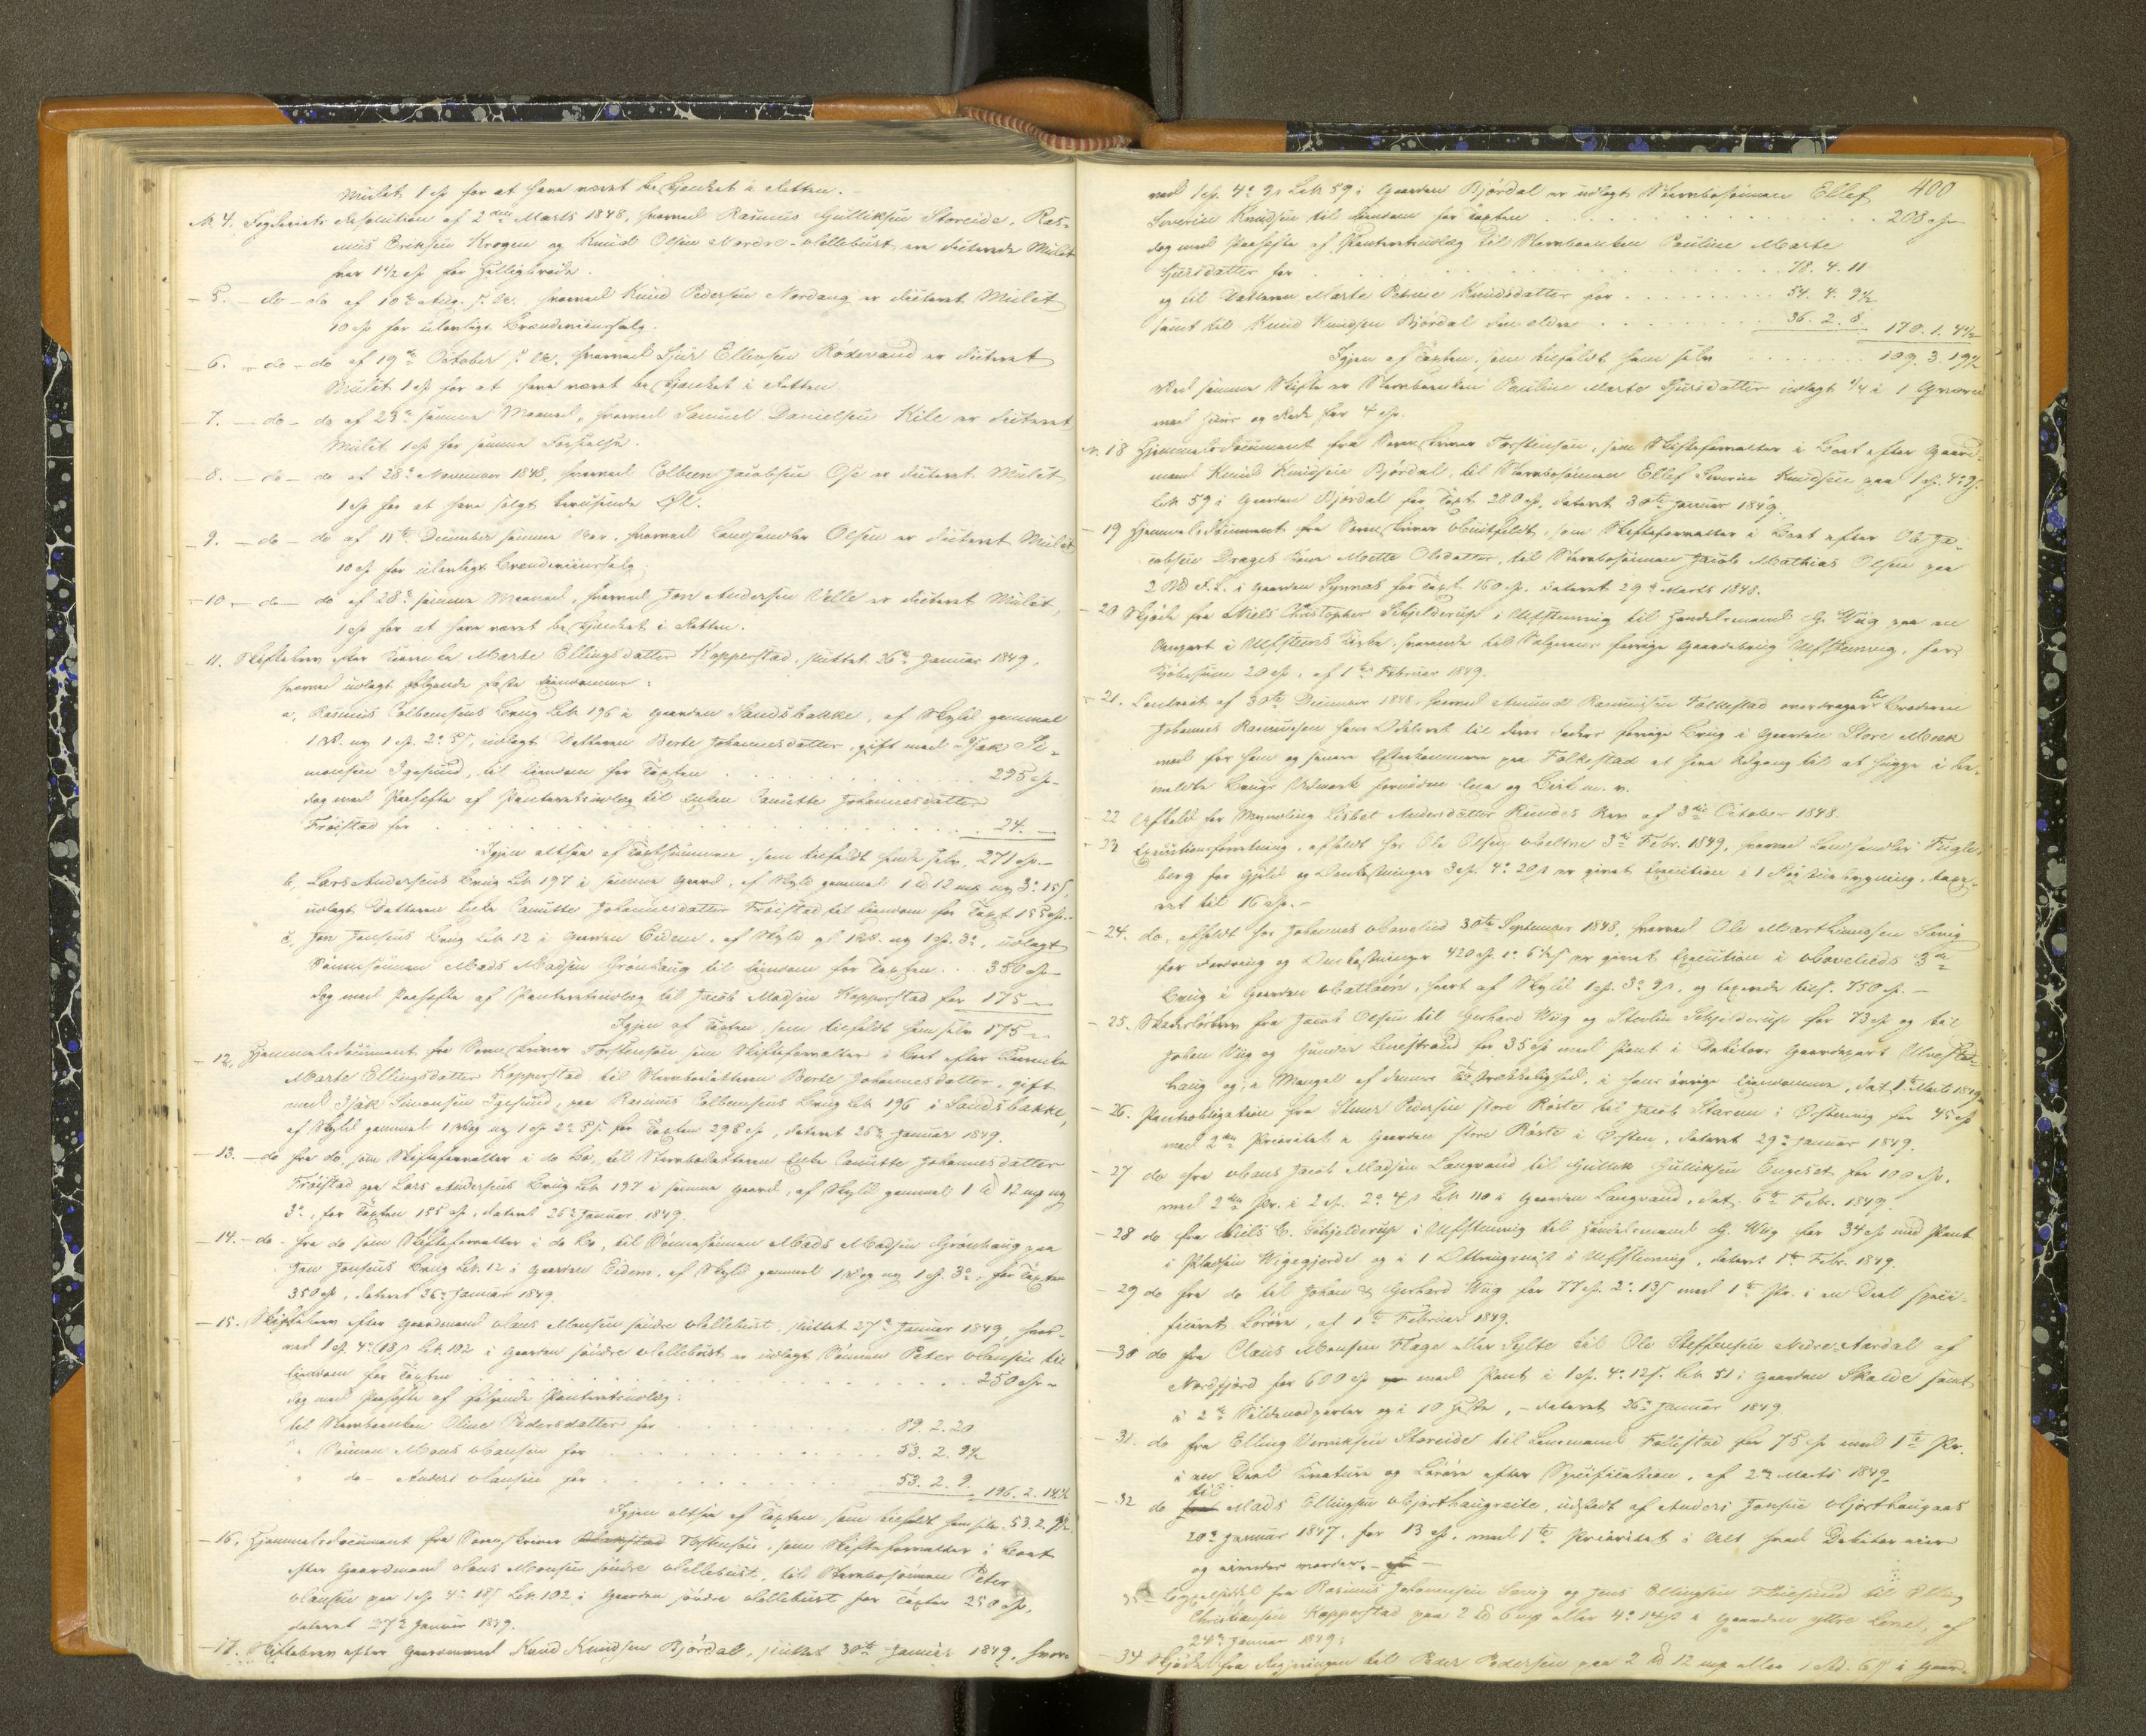 Mulct 1 Sp for at have været beskjænket i Retten.
N 4. Fogderiets Resolution af 2den Marts 1848, hvorved Rasmus Gulliksen Storeide, Ras-
mus Eriksen Krogen og Knud Olsen Nordre-Vellebust ere dicterede Mulct
hver 1 1/2 Sp for Helligbrøde.
- 5. - do - do af 10de Aug. s. A., hvorved Knud Pedersen Nordang er dicteret Mulct
10 Sp for ulovligt Brændeviinssalg.
- 6. - do - do af 19de October s. A., hvorved Sjur Ellevsen Rødevand er dicteret
Mulct 1 Sp for at have været beskjænket i Retten
- 7. - do - do af 23de samme Maaned, hvorved Samuel Danielsen Kile er dicteret
Mulct 1 Sp for samme Forseelse.
- 8. - do - do af 28de November 1848, hvorved Colbeen Jacobsen Ose er dicteret Mulct
1 Sp for at have solgt berusende Øl.
- 9. - do - do af 11te December samme Aar, hvorved Landhandler Olsen er dicteret Mulct
10 Sp for ulovligt Brændeviinssalg.
- 10 - do - do af 28de samme Maaned, hvorved Jon Andersen Velle er dicteret Mulct,
1 Sp for at have været beskjænket i Retten.
- 11. Skiftebrev efter Marte Ellingsdatter Kopperstad, sluttet 26de Januar 1849,
hvorved udlagt følgende faste Eiendomme:
a, Rasmus Colbensens Brug Lit 196 i Gaarden Sandsbakke, af Skyld gammel
ny 1 Sp. 2 5 s, udlagt Datteren Berte Johannesdatter, gift med Isak Si-
monsen Igesund, til Eiendom for Taxten . . . 295 Sp -
dog med Paahefte af Panteretindlæg til Enken Canutte Johannesdatter
Frøistad for . . . 24. -
Igjen altsaa af Taxtsummen, som tilfaldt hende selv, 271 Sp. -
b, Lars Andersens Brug Lit 197 i samme Gaard, af Skyld gammel 12 ny 3 15 s,
udlagt Datteren Enke Canutte Johannesdatter Frøistad til Eiendom for Taxt 155 Sp. -
c, Jon Jonsens Brug Lit 12 i Gaarden Eidem, af Skyld ny 1 Sp. 3, udlagt
Sønnesønnen Mads Madsen Grønhaug til Eiendom for Taxten . . . 350 Sp
dog med Paahefte af Panteretindlæg til Jacob Madsen Kopperstad for 175 -
Igjen af Taxten, som tilfaldt ham selv 175 -
- 12, Hjemmelsdocument fra Sorenskriver Torstensøn som Skifteforvalter i Boet efter
Marte Ellingsdatter Kopperstad til Stervbodatteren Berte Johannesdatter, gift
med Isak Simonsen Igesund, paa Rasmus Colbensens Brug Lit 196 i Sandsbakke,
af Skyld gammel 1 Vog ny 1 Sp 2 5 s. for Taxten 295 Sp, dateret 26de Januar 1849.
- 13. - do fra do, som Skifteforvalter i do Bo, til Stervbodatteren Enke Canutte Johannesdatter
Frøistad paa Lars Andersens Brug Lit 197 i samme Gaard, af Skyld gammel 12 ny
3, for Taxten 155 Sp, dateret 26de Januar 1849.
- 14. - do - fra do som Skifteforvalter i do Bo, til Sønnesønnen Mads Madsen Grønhaug paa
Jon Jonsens Brug Lit. 12 i Gaarden Eidem, af Skyld gammel 1 Vog ny 1 Sp. 3, for Taxten
350 Sp, dateret 26de Januar 1849.
- 15. Skiftebrev efter Gaardmand Hans Monsen søndre Vellebust, sluttet 27de Januar 1849, hvor-
ved 1 Sp. 4 18 s Lit. 102 i Gaarden søndre Vellebust er udlagt Sønnen Peter Hansen til
Eiendom for Taxten . . . 250 Sp -
dog med Paahefte af følgende Panteretindlæg:
til Stervboenken Oline Pedersdatter for . . . 89. 2. 20
" Sønnen Mons Hansen for . . . 53. 2. 9 1/2
" do - Anders Hansen for . . . 53. 2. 9. 196. 2. 14 1/2
Igjen altsaa af Taxten, som tilfaldt ham selv 53. 2. 9 1/2
- 16. Hjemmelsdocument fra Sorenskriver Torstensøn, som Skifteforvalter i Boet
efter Gaardmand Hans Monsen søndre Vellebust, til Stervbosønnen Peter
Hansen paa 1 Sp 4 18 s Lit. 102 i Gaarden søndre Vellebust for Taxten 250 Sp,
dateret 27de Januar 1849.
- 17. Skiftebrev efter Gaardmand Knud Knudsen Bjørdal, sluttet 30te Januar 1849, hvor-
400
ved 1 Sp. 4 9 s Lit 59 i Gaarden Bjørdal er udlagt Stervbosønnen Ellef
Severin Knudsen til Eiendom for Taxten . . . 208 Sp -
dog med Paahefte af Panteretindlæg til Stervboenken Pauline Marte
Sjursdatter for . . . 78. 4. 11
og til Datteren Marte Petrine Knudsdatter for . . . 54. 4. 9 1/2
samt til Knud Knudsen Bjørdal den eldre . . . 36. 2. 8 170. 1. 4 1/2
Igjen af Taxten, som tilfaldt ham selv . . . 109. 3. 19 1/2
Ved samme Skifte er Stervboenken Pauline Marte Sjursdatter udlagt 1/4 i 1 Qværn
med Huus og Rede for 4 Sp.
N. 18 Hjemmelsdocument fra Sorenskriver Torstensøn, som Skifteforvalter i Boet efter Gaard-
mand Knud Knudsen Bjørdal, til Stervbosønnen Ellef Severin Knudsen paa 1 Sp. 4 9 s.
Lit. 59 i Gaarden Bjørdal for Taxt 280 Sp, dateret 30te Januar 1849.
- 19 Hjemmelsdocument fra Sorenskriver Huitfeldt, som Skifteforvalter i Boet efter Ole Ja-
cobsen Drages Kone Mette Olsdatter, til Stervbosønnen Jacob Mathias Olsen paa
2 i Gaarden Synnæs for Taxt 160 Sp, dateret 29de Marts 1848.
- 20 Skjøde fra Niels Christopher Schjelderup i Ulfsteenvig til Handelsmand G. Wiig paa en
Anpart i Ulfsteens Kirke, svarende til Sælgerens forrige Gaardebrug Ulfsteenvig, for
Kjøbesum 20 Sp, af 1te Februar 1849.
- 21. Contract af 30te December 1848, hvorved Amund Rasmussen Folkestad overdrager Broderen
Johannes Rasmussen sin Odelsret til deres Faders forrige Brug i Gaarden Store Moek
mod for ham og senere Efterkommere paa Folkestad at have Adgang til at hugge i be-
meldte Brugs Udmark fornøden Lea og Birk m. v.
- 22 Afkald fra Myndling Lisbet Andersdatter Rundes Arv af 3die October 1848.
- 23 Executionsforretning, afholdt hos Ole Olsen Velsvik 3die Febr. 1849, hvorved Landhandler Fugle-
berg for Gjeld og Omkostninger 3 Sp. 4 20 s er givet Execution i 1 bygning, taxe-
ret til 16 Sp. -
- 24. do, afholdt hos Johannes Hovelied 30te September 1848, hvorved Ole Marthinussen Sørvig
for Fordring og Omkostninger 420 Sp. er givet Execution i Hovelieds 3de
Brug i Gaarden Hatløen, hvert af Skyld 1 Sp. 3 9 s, og taxerede tils. 750 Sp. -
- 25. Skadesløsbrev fra Jacob Olsen til Gerhard Wiig og Steelin Schjelderup for 73 Sp og til
Johan Wiig og Gunder Lenestrand for 35 Sp med Pant i Debitors Gaardepart Ulvestad-
haug og, i Mangel af dennes Tilstrækkelighed, i hans øvrige Eiendomme, dat. 1te Marts 1849.
- 26. Pantobligation fra Steener Pedersen store Røiste til Jacob Staven i Ørstenvig for 45 Sp
med 2den Prioritet i Gaarden store Røiste i Ørsten, dateret 29de Januar 1849.
- 27 do fra Hans Jacob Madsen Langvand til Gullik Gulliksen Engeset for 100 Sp.
med 2den Pr. i 2 Sp. 2 4 s Lit 110 i Gaarden Langvand, dat. 6te Febr. 1849.
- 28 do fra Niels C. Schjelderup i Ulfsteenvig til Handelsmand G. Wiig for 34 Sp med Pant
i Pladsen Wigegjerde og i 1 Ottringsnøst i Ulfsteenvig, dateret 1te Febr. 1849.
- 29 do fra do til Johan & Gerhard Wiig for 77 Sp. 2 13 s med 1te Pr. i en Deel speci-
ficeret Løsøre, af 1te Februar 1849.
- 30 do fra Claus Monsen Flage eller Sylte til Ole Steffensen Nedre-Aardal af
Nordfjord for 600 Sp med Pant i 1 Sp. 4 12 s. Lit 51 i Gaarden Skaide samt
i 2de Sildenodparter og i 10 , - dateret 26de Januar 1849
- 31. do fra Elling Henriksen Storeide til Lensmand Follestad for 75 Sp med 1te Pr.
i en Deel Creature og Løsøre efter Specification, af 2den Marts 1849
- 32 do til Mads Ellingsen Hjorthaugreite, udstedt af Anders Jonsen Hjorthaugaas
20de Januar 1847, for 13 Sp, med 1te Prioritet i Alt hvad Debitor eier
og eiendes vorder. -
33 - Bygselseddel fra Rasmus Johannesen Sørvig og Jens Ellingsen til Elling
Christiansen Kopperstad paa 2 6 eller 4 14 s i Gaarden yttre Lene, af
24de Januar 1849.
- 34 Skjøde fra Regjeringen til Peder Pedersen paa 2 12 eller 1 6 s i Gaard-